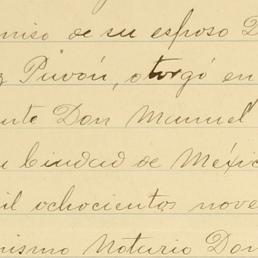 miso de su esposo D
z Pavón, otorgó en
nte Don Manuel
u Ciudad de Méxic
il ochocientos nove
mismo Notario Don